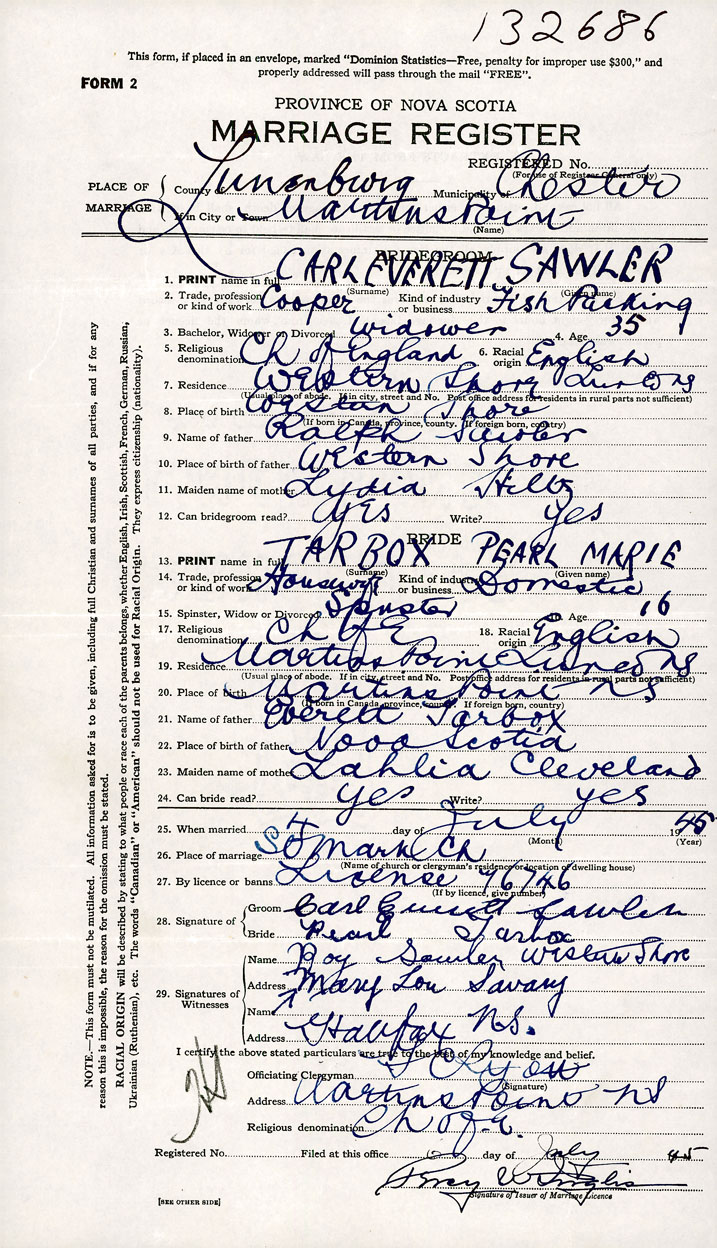 132686
This form, if placed in an envelope, marked "Dominion Statistics—Free, penalty for improper use $300," and
properly addressed will pass through the mail "FREE".
FORM 2
PROVINCE OF NOVA SCOTIA
MARRIAGE REGISTER
REGISTERED No.
(For use of Registrar General only)
PLACE OF MARRIAGE
County of Lunenburg Municipality of Chester
If in City or Town Martins Point
(Name)
BRIDEGROOM
1. PRINT name in full CARL EVERETT SAWLER
(Surname) (Given name)
2. Trade, profession or kind of work Cooper Kind of industry or business Fish Packing
3. Bachelor, Widower or Divorced Widower 4. Age 35
5. Religious denomination Ch of England 6. Racial origin English
7. Residence Western Shore Lun Co NS
(Usual place of abode. If in city, street and No. Post office address for residents in rural parts not sufficient)
8. Place of birth Western Shore
(If born in Canada, province, county. If foreign born, country)
9. Name of father Ralph Sawler
10. Place of birth of father Western Shore
11. Maiden name of mother Lydia Hiltz
12. Can bridegroom read? yes Write? yes
BRIDE
13. PRINT name in full TARBOX PEARL MARIE
(Surname) (Given name)
14. Trade, profession or kind of work Housewif Kind of industry or business Domestic
15. Spinster, Widow or Divorced Spinster 16. Age 16
17. Religious denomination Ch of E 18. Racial origin English
19. Residence Martins Point NS
(Usual place of abode. If in city, street and No. Post office address for residents in rural parts not sufficient)
20. Place of birth Martins Point NS
(If born in Canada, province, county. If foreign born, country)
21. Name of father Everett Tarbox
22. Place of birth of father Nova Scotia
23. Maiden name of mother Lahlia Cleveland
24. Can bride read? yes Write? yes
25. When married 4 day of July 1945
(Month) (Year)
26. Place of marriage St Mark Ch
(Name of church or clergyman's residence or location of dwelling house)
27. By licence or banns License 76746
(If by licence, give number)
28. Signature of
Groom Carl Everett Sawler
Bride Pearl Tarbox
29. Signatures of Witnesses
Name Roy Sawler Western Shore
Address Mary Lou Savary
Name
Address Halifax NS.
I certify the above stated particulars are true to the best of my knowledge and belief.
Officiating Clergyman
(Signature)
Address Martins Point NS
Religious denomination Ch of E.
Registered No. Filed at this office day of July 45
Signature of Issuer of Marriage Licence
[SEE OTHER SIDE]
NOTE.—This form must not be mutilated. All information asked for is to be given, including full Christian and surnames of all parties, and if for any
reason this is impossible, the reason for the omission must be stated.
RACIAL ORIGIN will be described by stating to what people or race each of the parents belongs, whether English, Irish, Scottish, French, German, Russian,
Ukrainian (Ruthenian), etc. The words "Canadian" or "American" should not be used for Racial Origin. They express citizenship (nationality).